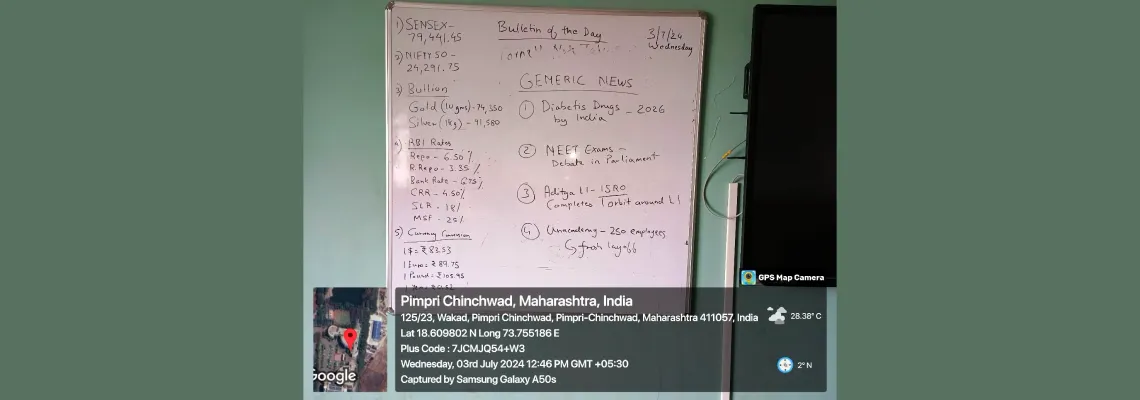 Bulletin of the Day
3/7/24
Wednesday
1) SENSEX -
79,441.45
2) NIFTY 50 -
24,291.75
3) Bullion
Gold (10 gms) - 74,350
Silver (1kg) - 91,580
4) RBI Rates
Repo - 6.50 %
R. Repo - 3.35 %
Bank Rate - 6.75 %
CRR - 4.50 %
SLR - 18 %
MSF - 25 %
5) Currency Conversion
1 $ = ₹ 83.53
1 Euro = ₹ 89.75
1 Pound = ₹ 105.95
GEMERIC NEWS
1 Diabetis Drugs - 2026
by India
2 NEET Exams -
Debate in Parliament
3 Aditya L1 - ISRO
Completes 1 orbit around L1
4 Unacademy - 250 employees
fresh layoff
GPS Map Camera
Pimpri Chinchwad, Maharashtra, India
125/23, Wakad, Pimpri Chinchwad, Pimpri-Chinchwad, Maharashtra 411057, India
Lat 18.609802 N Long 73.755186 E
Plus Code : 7JCMJQ54+W3
Wednesday, 03rd July 2024 12:46 PM GMT +05:30
Captured by Samsung Galaxy A50s
28.38° C
2° N
Google